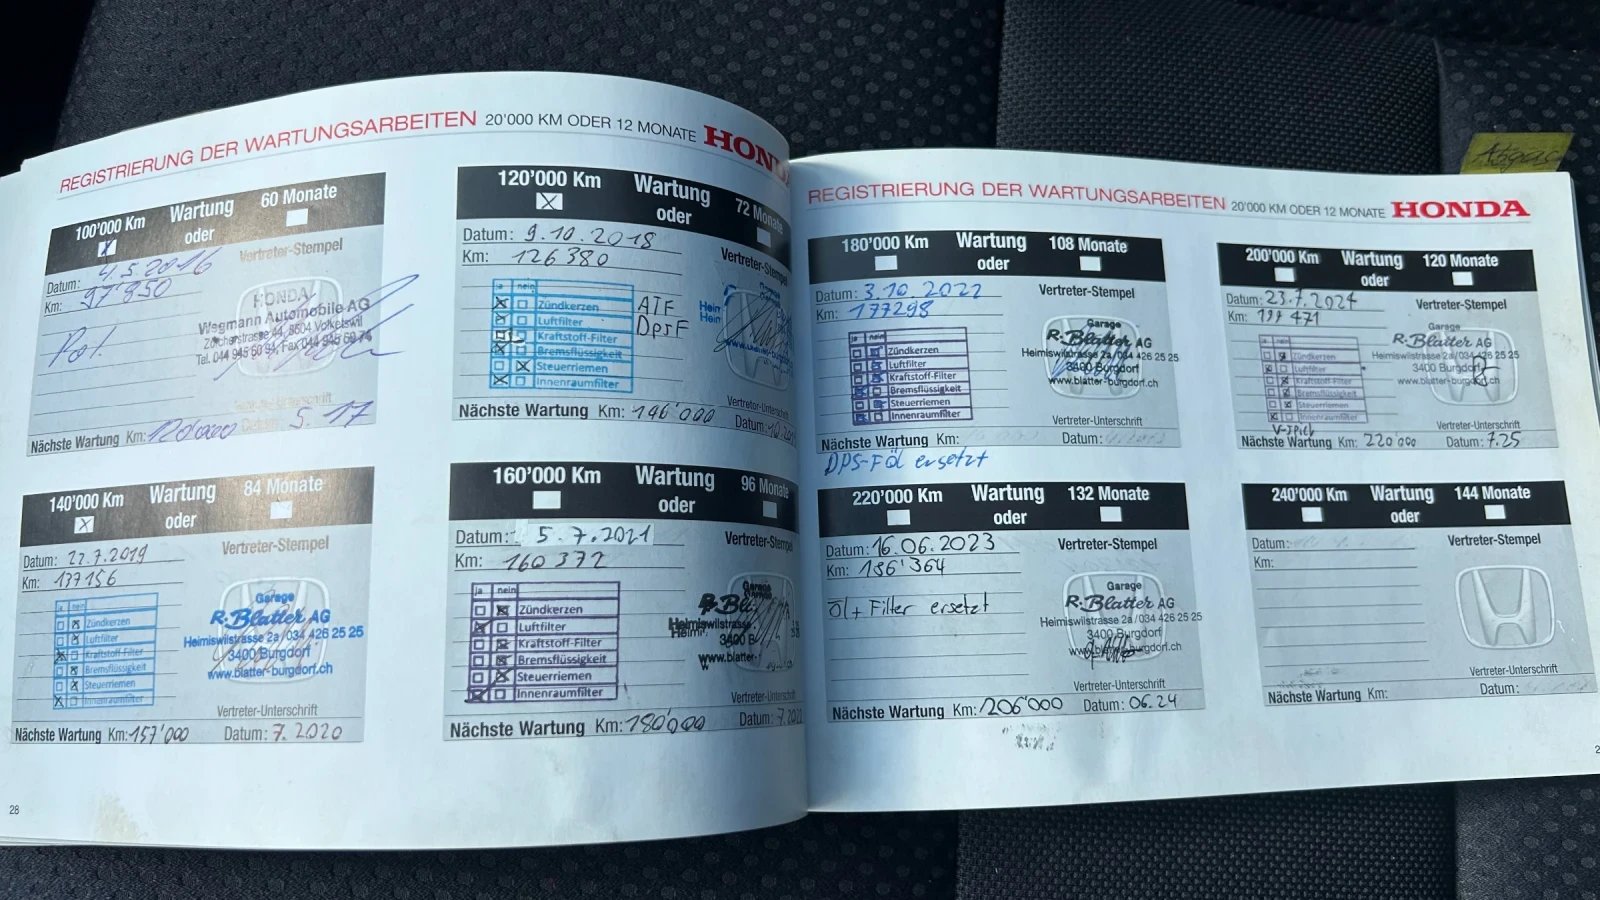 REGISTRIERUNG DER WARTUNGSARBEITEN 20'000 KM ODER 12 MONATE HONDA
100'000 Km Wartung oder 60 Monate
Vertreter-Stempel
Datum: 4.5.2016
Km: 97'850
HONDA
Wegmann Automobile AG
Zürcherstrasse 44, 8604 Volketswil
Tel. 044 945 60 94, Fax 044 945 60 74
Nächste Wartung Km: 120'000 Datum: 5.17
120'000 Km Wartung oder 72 Monate
Datum: 9.10.2018
Vertreter-Stempel
Km: 126 380
ja nein
Zündkerzen
Luftfilter
Kraftstoff-Filter
Bremsflüssigkeit
Steuerriemen
Innenraumfilter
ATF
DPSF
Vertreter-Unterschrift
Nächste Wartung Km: 146'000 Datum:
140'000 Km Wartung oder 84 Monate
Datum: 22.7.2019
Vertreter-Stempel
Km: 137156
ja nein
Zündkerzen
Luftfilter
Kraftstoff-Filter
Bremsflüssigkeit
Steuerriemen
Innenraumfilter
Garage
R. Blatter AG
Heimiswilstrasse 2a/034 426 25 25
3400 Burgdorf
www.blatter-burgdorf.ch
Vertreter-Unterschrift
Nächste Wartung Km: 157'000 Datum: 7.2020
160'000 Km Wartung oder 96 Monate
Datum: 5.7.2021
Vertreter-Stempel
Km: 160 372
ja nein
Zündkerzen
Luftfilter
Kraftstoff-Filter
Bremsflüssigkeit
Steuerriemen
Innenraumfilter
Garage
Vertreter-Unterschrift
Nächste Wartung Km: 180'000 Datum:
28
REGISTRIERUNG DER WARTUNGSARBEITEN 20'000 KM ODER 12 MONATE HONDA
180'000 Km Wartung oder 108 Monate
Datum: 3.10.2022
Vertreter-Stempel
Km: 177298
ja nein
Zündkerzen
Luftfilter
Kraftstoff-Filter
Bremsflüssigkeit
Steuerriemen
Innenraumfilter
Garage
R. Blatter AG
Heimiswilstrasse 2a/034 426 25 25
3400 Burgdorf
www.blatter-burgdorf.ch
Vertreter-Unterschrift
Nächste Wartung Km: Datum:
DPS-Föl ersetzt
200'000 Km Wartung oder 120 Monate
Datum: 23.7.2024
Vertreter-Stempel
Km: 199 471
ja nein
Zündkerzen
Luftfilter
Kraftstoff-Filter
Bremsflüssigkeit
Steuerriemen
Innenraumfilter
V-Spiel
Garage
R. Blatter AG
Heimiswilstrasse 2a/034 426 25 25
3400 Burgdorf
www.blatter-burgdorf.ch
Vertreter-Unterschrift
Nächste Wartung Km: 220 000 Datum: 7.25
220'000 Km Wartung oder 132 Monate
Datum: 16.06.2023
Vertreter-Stempel
Km: 186'364
Öl + Filter ersetzt
Garage
R. Blatter AG
Heimiswilstrasse 2a/034 426 25 25
3400 Burgdorf
www.blatter-burgdorf.ch
Vertreter-Unterschrift
Nächste Wartung Km: 206'000 Datum: 06.24
240'000 Km Wartung oder 144 Monate
Datum:
Vertreter-Stempel
Km:
Vertreter-Unterschrift
Nächste Wartung Km: Datum: